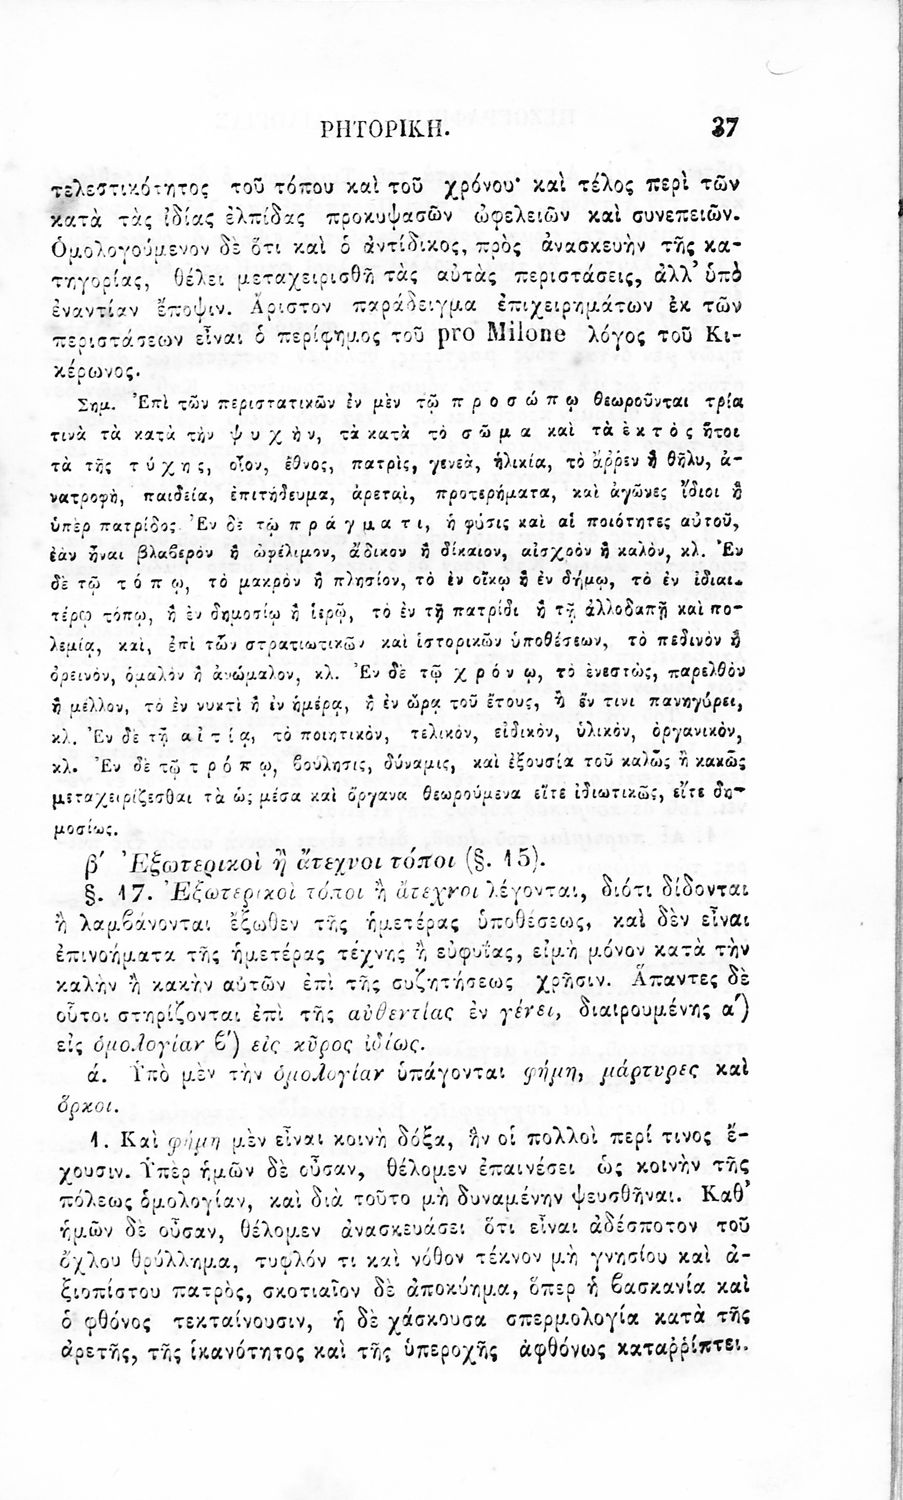 ΡΗΤΟΡΙΚΗ. 37
τελεστικότητος τοῦ τόπου καὶ τοῦ χρόνου· καὶ τέλος περὶ τῶν
κατὰ τὰς ἰδίας ἐλπίδας προκυψασῶν ὠφελειῶν καὶ συνεπειῶν.
Ὁμολογούμενον δὲ ὅτι καὶ ὁ ἀντίδικος, πρὸς ἀνασκευὴν τῆς κα-
τηγορίας, θέλει μεταχειρισθῆ τὰς αὐτὰς περιστάσεις, ἀλλ' ὑπὸ
ἐναντίαν ἔποψιν. Ἄριστον παράδειγμα ἐπιχειρημάτων ἐκ τῶν
περιστάσεων εἶναι ὁ περίφημος τοῦ pro Milone λόγος τοῦ Κι-
κέρωνος.
Σημ. Ἐπὶ τῶν περιστατικῶν ἐν μὲν τῷ π ρ ο σ ώ π ῳ θεωροῦνται τρία
τινὰ τὰ κατὰ τὴν ψ υ χ ὴ ν, τὰ κατὰ τὸ σ ῶ μ α καὶ τὰ ἐ κ τ ὸ ς ἤτοι
τὰ τῆς τ ύ χ η ς, οἷον, ἔθνος, πατρὶς, γενεὰ, ἡλικία, τὸ ἄῤῥεν ἢ θῆλυ, ἀ-
νατροφὴ, παιδεία, ἐπιτήδευμα, ἀρεταὶ, προτερήματα, καὶ ἀγῶνες ἴδιοι ἢ
ὑπὲρ πατρίδος. Ἐν δὲ τῷ π ρ ά γ μ α τ ι, ἡ φύσις καὶ αἱ ποιότητες αὐτοῦ,
ἐὰν ἦναι βλαβερὸν ἢ ὠφέλιμον, ἄδικον ἢ δίκαιον, αἰσχρὸν ἢ καλὸν, κλ. Ἐν
δὲ τῷ τ ό π ῳ, τὸ μακρὸν ἢ πλησίον, τὸ ἐν οἴκῳ ἢ ἐν δήμῳ, τὸ ἐν ἰδιαι-
τέρῳ τόπῳ, ἢ ἐν δημοσίῳ ἢ ἱερῷ, τὸ ἐν τῇ πατρίδι ἢ τῇ ἀλλοδαπῇ καὶ πο-
λεμίᾳ, καὶ, ἐπὶ τῶν στρατιωτικῶν καὶ ἱστορικῶν ὑποθέσεων, τὸ πεδινὸν ἢ
ὀρεινὸν, ὁμαλὸν ἢ ἀνώμαλον, κλ. Ἐν δὲ τῷ χ ρ ό ν ῳ, τὸ ἐνεστὼς, παρελθὸν
ἢ μέλλον, τὸ ἐν νυκτὶ ἢ ἐν ἡμέρᾳ, ἢ ἐν ὥρᾳ τοῦ ἔτους, ἢ ἔν τινι πανηγύρει,
κλ. Ἐν δὲ τῇ α ἰ τ ί ᾳ, τὸ ποιητικὸν, τελικὸν, εἰδικὸν, ὑλικὸν, ὀργανικὸν,
κλ. Ἐν δὲ τῷ τ ρ ό π ῳ, βούλησις, δύναμις, καὶ ἐξουσία τοῦ καλῶς ἢ κακῶς
μεταχειρίζεσθαι τὰ ὡς μέσα καὶ ὄργανα θεωρούμενα εἴτε ἰδιωτικῶς, εἴτε δη-
μοσίως.
β' Ἐξωτερικοὶ ἢ ἄτεχνοι τόποι (§. 15).
§. 17. Ἐξωτερικοὶ τόποι ἢ ἄτεχνοι λέγονται, διότι δίδονται
ἢ λαμβάνονται ἔξωθεν τῆς ἡμετέρας ὑποθέσεως, καὶ δὲν εἶναι
ἐπινοήματα τῆς ἡμετέρας τέχνης ἢ εὐφυΐας, εἰμὴ μόνον κατὰ τὴν
καλὴν ἢ κακὴν αὐτῶν ἐπὶ τῆς συζητήσεως χρῆσιν. Ἅπαντες δὲ
οὗτοι στηρίζονται ἐπὶ τῆς αὐθεντίας ἐν γένει, διαιρουμένης α')
εἰς ὁμολογίαν β') εἰς κῦρος ἰδίως.
ά. Ὑπὸ μὲν τὴν ὁμολογίαν ὑπάγονται φήμη, μάρτυρες καὶ
ὅρκοι.
1. Καὶ φήμη μὲν εἶναι κοινὴ δόξα, ἣν οἱ πολλοὶ περί τινος ἔ-
χουσιν. Ὑπὲρ ἡμῶν δὲ οὖσαν, θέλομεν ἐπαινέσει ὡς κοινὴν τῆς
πόλεως ὁμολογίαν, καὶ διὰ τοῦτο μὴ δυναμένην ψευσθῆναι. Καθ'
ἡμῶν δὲ οὖσαν, θέλομεν ἀνασκευάσει ὅτι εἶναι ἀδέσποτον τοῦ
ὄχλου θρύλλημα, τυφλόν τι καὶ νόθον τέκνον μὴ γνησίου καὶ ἀ-
ξιοπίστου πατρὸς, σκοτιαῖον δὲ ἀποκύημα, ὅπερ ἡ βασκανία καὶ
ὁ φθόνος τεκταίνουσιν, ἡ δὲ χάσκουσα σπερμολογία κατὰ τῆς
ἀρετῆς, τῆς ἱκανότητος καὶ τῆς ὑπεροχῆς ἀφθόνως καταῤῥίπτει.